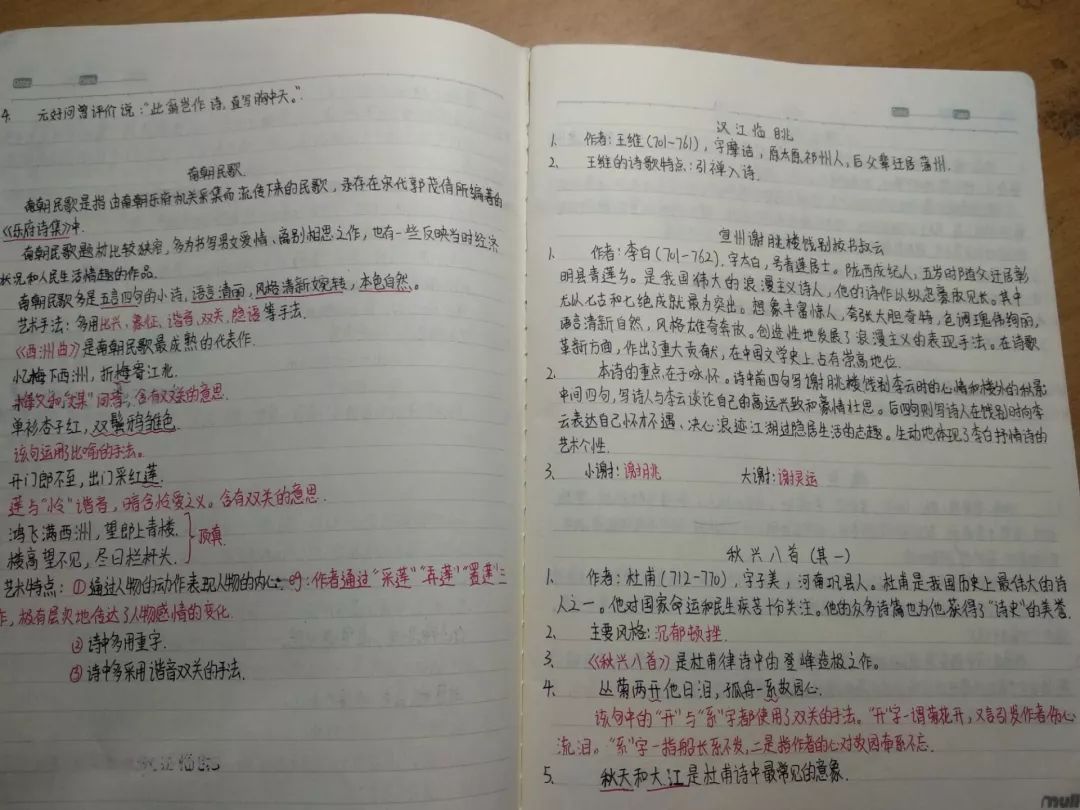 4. 元好问曾评价说:"此翁岂作诗,直写胸中天。"
南朝民歌
南朝民歌是指由南朝乐府机关采集而流传下来的民歌,录存在宋代郭茂倩所编著的
《乐府诗集》中.
南朝民歌题材比较狭窄,多为书写男女爱情、离别相思之作,也有一些反映当时经济
状况和人民生活情趣的作品。
南朝民歌多是五言四句的小诗,语言清丽,风格清新婉转,本色自然。
艺术手法:多用比兴、象征、谐音、双关、隐语等手法.
《西洲曲》是南朝民歌最成熟的代表作.
忆梅下西洲,折梅寄江北.
"梅"又和"某"同音,含有双关的意思.
单衫杏子红,双鬓鸦雏色.
该句运用了比喻的手法。
开门郎不至,出门采红莲.
莲与"怜"谐音,暗含怜爱之义。含有双关的意思.
鸿飞满西洲,望郎上青楼.
楼高望不见,尽日栏杆头. 顶真.
艺术特点:①通过人物的动作表现人物的内心:eg:作者通过"采莲""弄莲""置莲"三
作,极有层次地传达了人物感情的变化.
②诗中多用重字.
③诗中多采用谐音双关的手法.
汉江临眺
1. 作者:王维(701-761),字摩诘,原太原祁州人,后父辈迁居蒲州.
2. 王维的诗歌特点:引禅入诗.
宣州谢朓楼饯别校书叔云
1. 作者:李白(701-762),字太白,号青莲居士。陇西成纪人,五岁时随父迁居彰
明县青莲乡。是我国伟大的浪漫主义诗人,他的诗作以纵恣豪放见长。其中
尤以七古和七绝成就最为突出。想象丰富惊人,夸张大胆奇特,色调瑰伟绚丽,
语言清新自然,风格雄奇奔放。创造性地发展了浪漫主义的表现手法。在诗歌
革新方面,作出了重大贡献,在中国文学史上占有崇高地位.
2. 本诗的重点在于咏怀。诗中前四句写谢朓楼饯别李云时的心情和楼外的秋景
中间四句,写诗人与李云谈论自己的高远兴致和豪情壮思。后四句则写诗人在饯别时向李
云表达自己怀才不遇、决心浪迹江湖过隐居生活的志趣。生动地体现了李白抒情诗的
艺术个性.
3. 小谢:谢朓 大谢:谢灵运
秋兴八首(其一)
1. 作者:杜甫(712-770),字子美,河南巩县人。杜甫是我国历史上最伟大的诗
人之一。他对国家命运和民生疾苦十分关注。他的众多诗篇也为他获得了"诗史"的美誉.
2. 主要风格:沉郁顿挫.
3. 《秋兴八首》是杜甫律诗中的登峰造极之作。
4. 丛菊两开他日泪,孤舟一系故园心.
该句中的"开"与"系"字都使用了双关的手法。"开"字一谓菊花开,又言引发作者伤心
流泪。"系"字一指船长系不发,二是指作者的心对故园牵系不忘.
5. 秋天和大江是杜甫诗中最常见的意象.